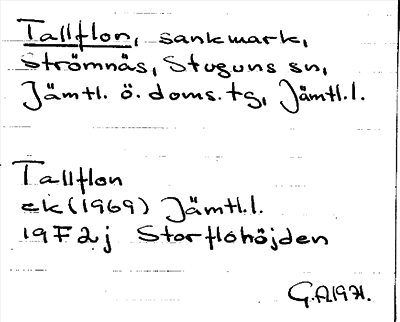 Tallflon, sankmark,
Strömnäs, Stuguns sn,
Jämtl. ö. doms. tg, Jämtl.l.
Tallflon
ek (1969) Jämtl.l.
19F2j Storflohöjden
G.A.1971.